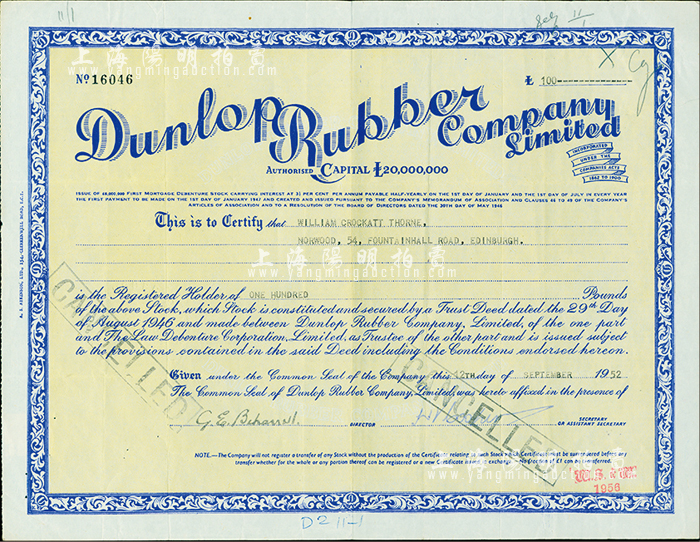 11/1
11/1
上海陽明拍賣
www.yangmingauction.com
X Cg
No 16046
£ 100
Dunlop Rubber Company Limited
AUTHORISED CAPITAL £20,000,000
INCORPORATED
UNDER THE
COMPANIES ACTS
1862 TO 1900
ISSUE OF £8,000,000 FIRST MORTGAGE DEBENTURE STOCK CARRYING INTEREST AT 3½ PER CENT PER ANNUM PAYABLE HALF-YEARLY ON THE 1ST DAY OF JANUARY AND THE 1ST DAY OF JULY IN EVERY YEAR
THE FIRST PAYMENT TO BE MADE ON THE 1ST DAY OF JANUARY 1947 AND CREATED AND ISSUED PURSUANT TO THE COMPANY'S MEMORANDUM OF ASSOCIATION AND CLAUSES 46 TO 49 OF THE COMPANY'S
ARTICLES OF ASSOCIATION AND TO A RESOLUTION OF THE BOARD OF DIRECTORS DATED THE 30TH DAY OF MAY 1946
This is to Certify that WILLIAM CROCKATT THORNE,
NORWOOD, 54, FOUNTAINHALL ROAD, EDINBURGH.
上海陽明拍賣
www.yangmingauction.com
is the Registered Holder of ONE HUNDRED Pounds
of the above Stock, which Stock is constituted and secured by a Trust Deed dated the 29th Day
of August 1946 and made between Dunlop Rubber Company, Limited, of the one part
and The Law Debenture Corporation, Limited, as Trustee of the other part and is issued subject
to the provisions contained in the said Deed including the Conditions endorsed hereon.
CANCELLED
CANCELLED
Given under the Common Seal of the Company this 12th day of SEPTEMBER 1952
The Common Seal of Dunlop Rubber Company, Limited, was hereto affixed in the presence of
G. E. Beharrell.
DIRECTOR
SECRETARY
OR ASSISTANT SECRETARY
NOTE.—The Company will not register a transfer of any Stock without the production of the Certificate relating to such Stock which Certificate must be surrendered before any
transfer whether for the whole or any portion thereof can be registered or a new Certificate issued in exchange. No fraction of £1 can be transferred.
1956
D2 11-1